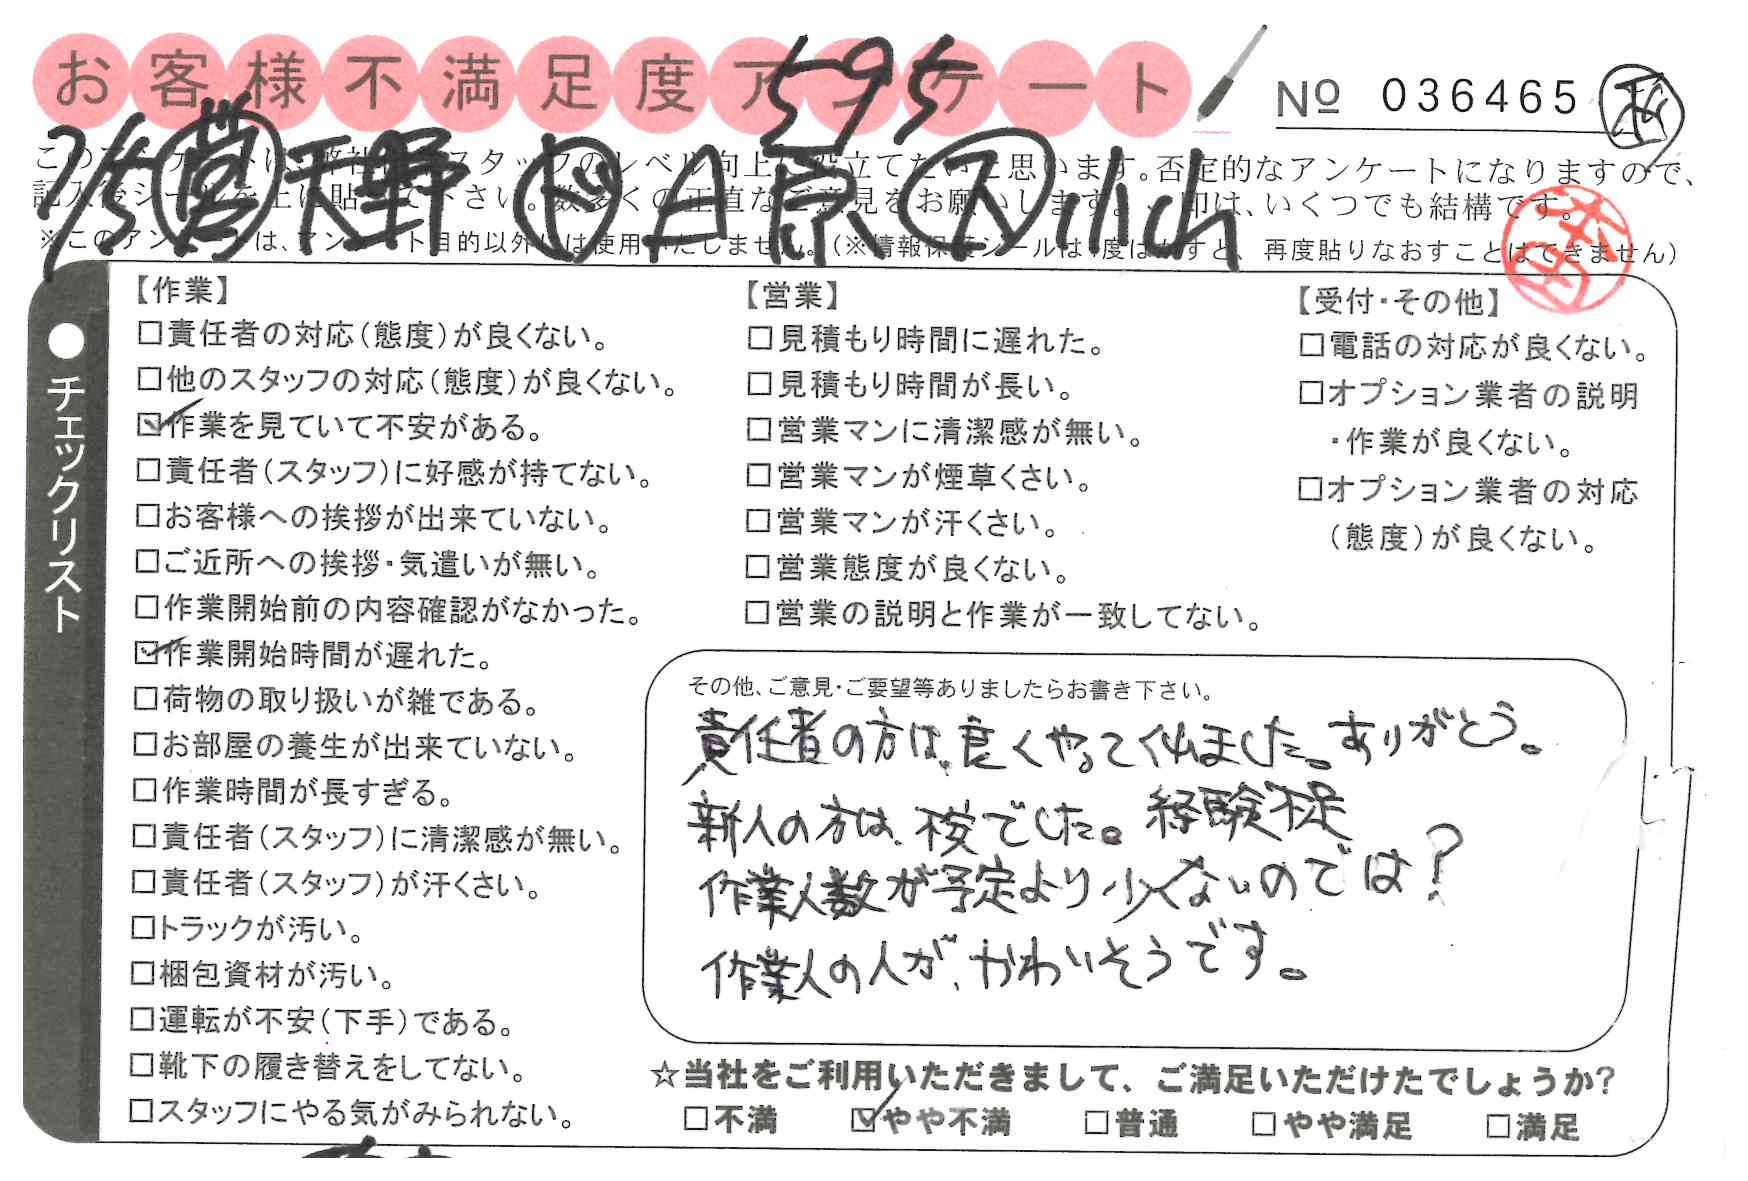 お客様不満足度アンケート
595
№ 036465
7/5 営 天野 ド 原 ス 小山
否定的なアンケートになりますので、
をお願いします。 印は、いくつでも結構です。
再度貼りなおすことはできません)
●チェックリスト
【作業】
□責任者の対応(態度)が良くない。
□他のスタッフの対応(態度)が良くない。
☑作業を見ていて不安がある。
□責任者(スタッフ)に好感が持てない。
□お客様への挨拶が出来ていない。
□ご近所への挨拶・気遣いが無い。
□作業開始前の内容確認がなかった。
☑作業開始時間が遅れた。
□荷物の取り扱いが雑である。
□お部屋の養生が出来ていない。
□作業時間が長すぎる。
□責任者(スタッフ)に清潔感が無い。
□責任者(スタッフ)が汗くさい。
□トラックが汚い。
□梱包資材が汚い。
□運転が不安(下手)である。
□靴下の履き替えをしてない。
□スタッフにやる気がみられない。
【営業】
□見積もり時間に遅れた。
□見積もり時間が長い。
□営業マンに清潔感が無い。
□営業マンが煙草くさい。
□営業マンが汗くさい。
□営業態度が良くない。
□営業の説明と作業が一致してない。
【受付・その他】
□電話の対応が良くない。
□オプション業者の説明
・作業が良くない。
□オプション業者の対応
(態度)が良くない。
その他、ご意見・ご要望等ありましたらお書き下さい。
責任者の方は、良くやってくれました。ありがとう。
新人の方は、不安でした。経験不足
作業人数が予定より少くないのでは?
作業人の人が、かわいそうです。
☆当社をご利用いただきまして、ご満足いただけたでしょうか?
□不満 ☑やや不満 □普通 □やや満足 □満足